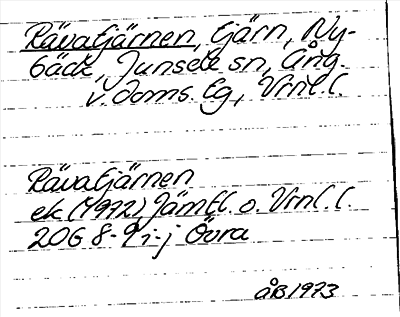 Rävatjärnen, tjärn, Ny-
bäck, Junsele sn, Ång.
v. doms. lg, Vrnl. l.
Rävatjärnen
ek (1972) Jämtl. o. Vrnl. l.
20G 8-9 i-j Övra
åB 1973